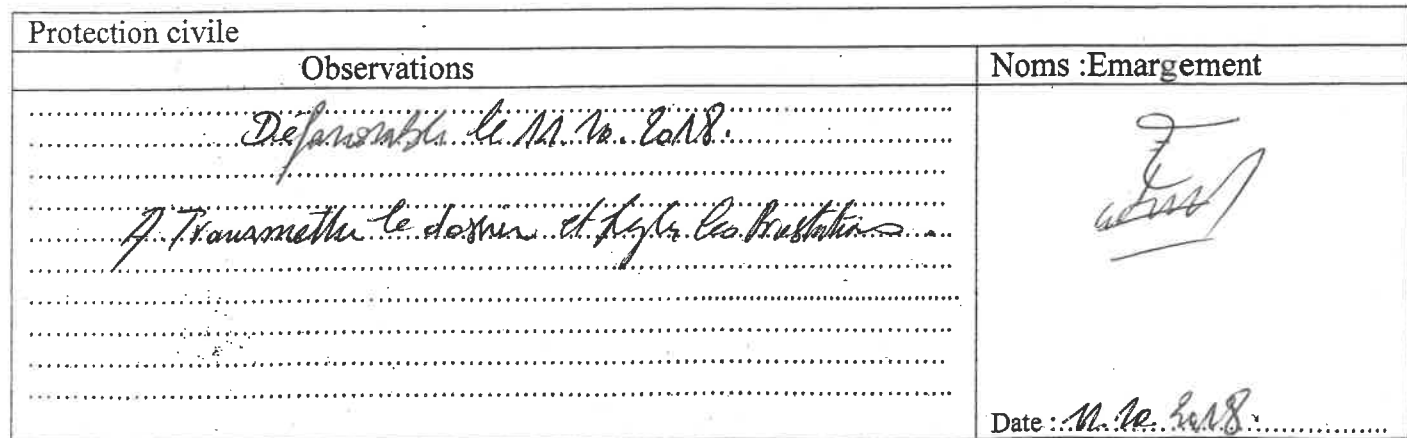 Protection civile
Observations
Noms :Emargement
Défavorable le 11.10.2018.
A Transmettre le dossier et régler les Prestations
Date : 11.10.2018.